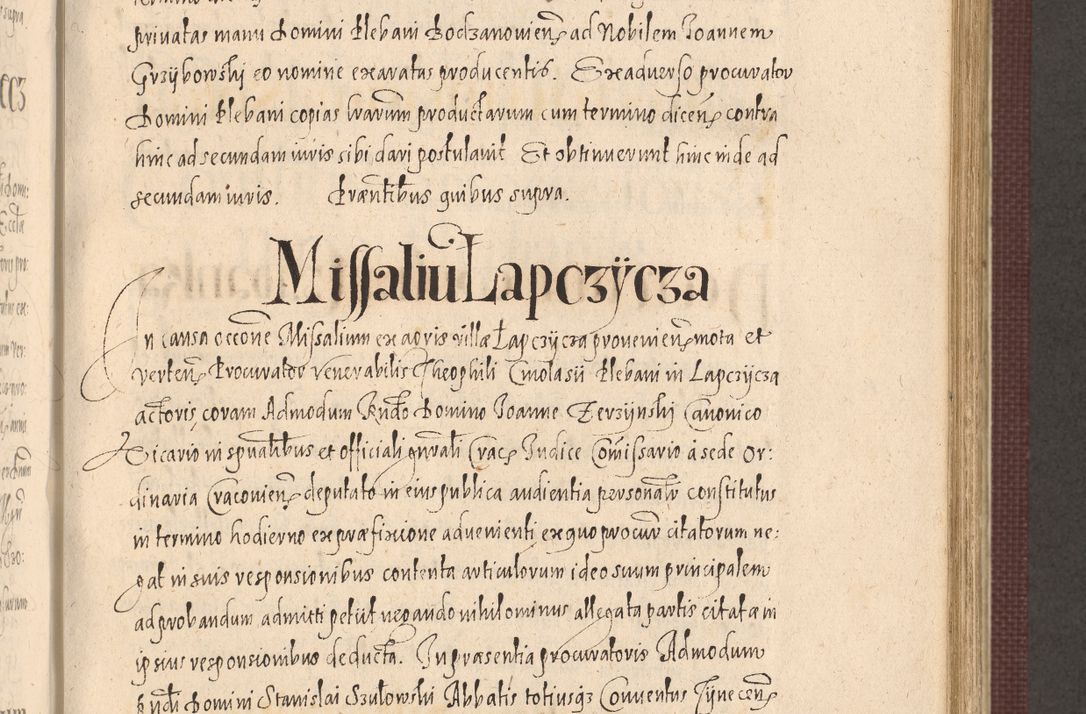 privatas manu Domini Plebani Bodzanovien̄ ad Nobilem Joannem
Grzÿbowski eo nomine exaratas producentis. Ex adverso procurator
Domini Plebani copias lrarum productarum cum termino dicen̄ contra
hinc ad secundam iuris sibi dari postulavit Et obtinuerunt hinc inde ad
secundam iuris. Præntibus quibus supra.
Missaliū Łapczÿcza
In causa occōne Missalium ex agris villæ Łapczÿcza provenien̄ mota et
verten̄ Procurator venerabilis Theophili Plebani in Lapczÿcza
actoris, coram Admodum Rndo Domino Joanne Zerzÿnski Canonico
Vicario in spualibus et officiali gnrali Crac̄ Judice Com̄issario à sede Or:
dinaria Cracovien̄ deputato in eius publica audientia personalr constitutus
in termino hodierno ex præfixione advenienti ex quo procur citatorum ne:
gat in suis responsionibus contenta articulorum ideo suum principalem
ad probandum admitti petiit negando nihilominus allegata partis citatæ in
ipsius responsionibus deducta. In præsentia procuratoris Admodum
Rndi Domini Stanislai Szułowski Abbatis totiusq3 Conventus Tÿnecen̄